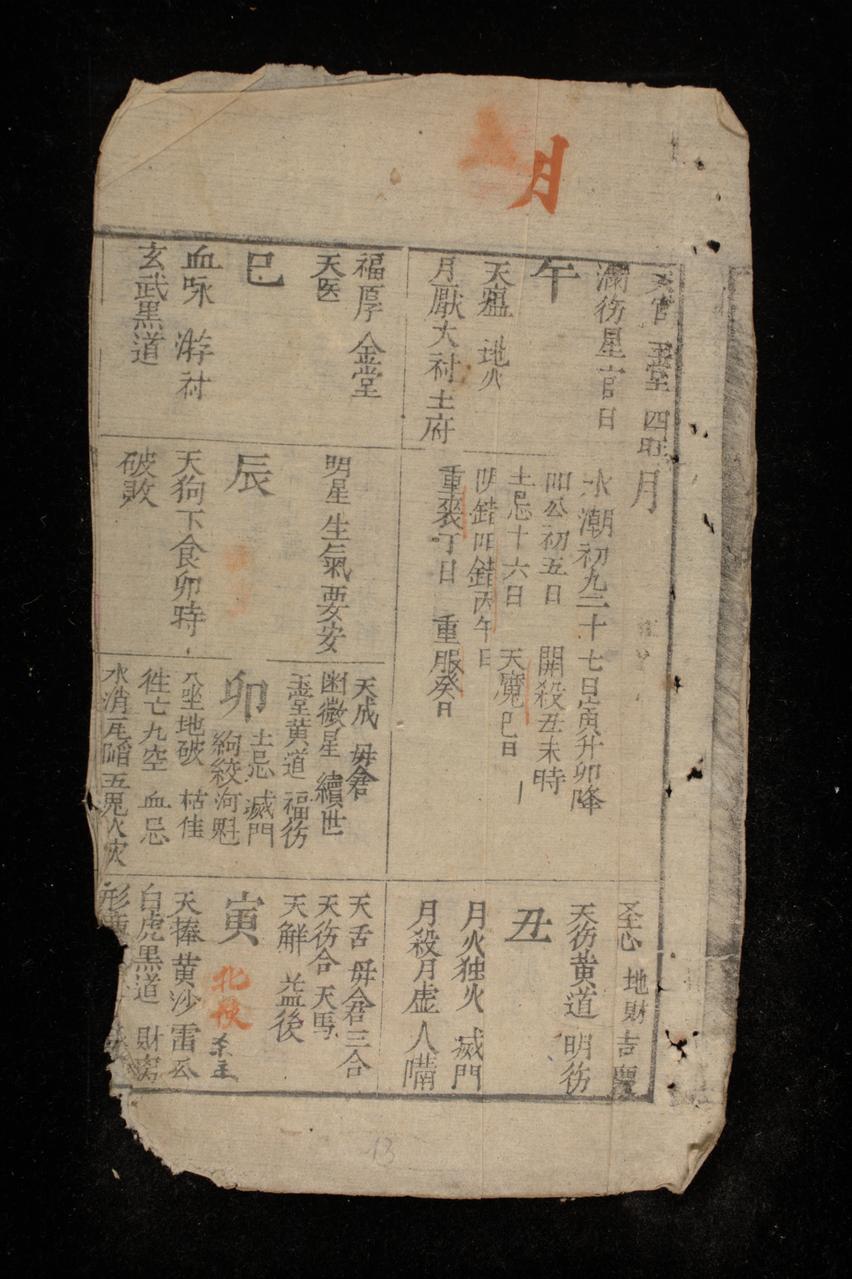 月
天官 玉堂 四旺
满彷星 官日
午
天瘟 地火
月厭大衬土府
福厚 金堂
天医
巳
血㕲 游衬
玄武黑道
月
水潮初九二十七日寅升卯降
四公初五日 開殺丑未時
土忌十六日 天魔巳日
阴錯阳錯丙午日
重喪丁日 重服癸日
明星生氣要安
辰
天狗下食卯時
破敗
天成 毋倉
幽微星 續世
玉堂黄道 福彷
卯
土忌 滅門
絢絞河魁
八坐地破 枯佳
徃亡九空 血忌
水消瓦陷五鬼人灾
圣心 地財 吉慶
天彷黄道 明彷
丑
月火独火 滅門
月殺月虚 人嗬
天舌 毋倉三合
天彷合 天馬
天解 益後
寅
北
天捧 黄沙 雷公
白虎黑道 財离
13